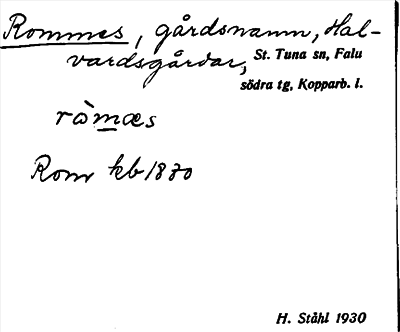 Rommes, gårdsnamn, Hal-
vardsgårdar, St. Tuna sn, Falu
södra tg, Kopparb. l.
ròmæs
Rom kb 1870
H. Ståhl 1930